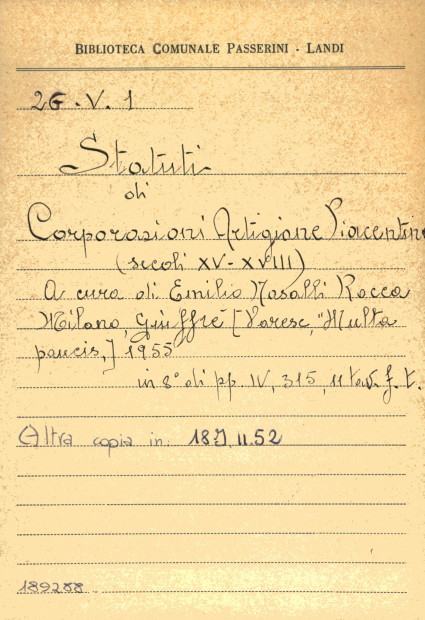 BIBLIOTECA COMUNALE PASSERINI - LANDI
2G.V.1
Statuti
di
Corporazioni Artigiane Piacentine
(secoli XV-XVIII)
A cura di Emilio Nasalli Rocca
Milano, Giuffrè [Varese, "Multa
paucis,,] 1955
in 8° di pp. IV, 315, 11 tav. f. t.
Altra copia in 18J.11.52
189288